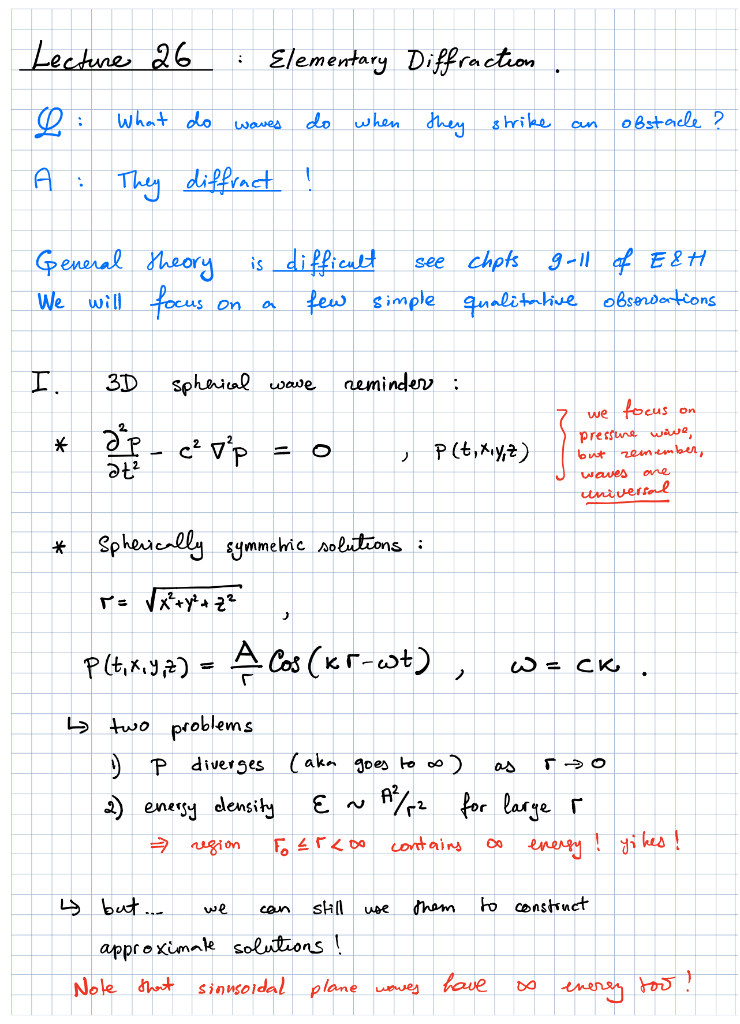 Lecture 26 : Elementary Diffraction.
Q : What do waves do when they strike an obstacle?
A : They diffract !
General theory is difficult see chpts 9-11 of E&H
We will focus on a few simple qualitative observations
I. 3D spherical wave reminder :
* ∂²p/∂t² - c² ∇²p = 0 , p(t,x,y,z)
we focus on
pressure wave,
but remember,
waves are
universal
* Spherically symmetric solutions :
r = √x²+y²+z² ,
p(t,x,y,z) = A/r Cos(kr-ωt) , ω = ck .
↳ two problems
1) p diverges (aka goes to ∞) as r → 0
2) energy density ε ~ A²/r² for large r
⇒ region r₀ ≤ r < ∞ contains ∞ energy! yikes!
↳ but... we can still use them to construct
approximate solutions!
Note that sinusoidal plane waves have ∞ energy too!